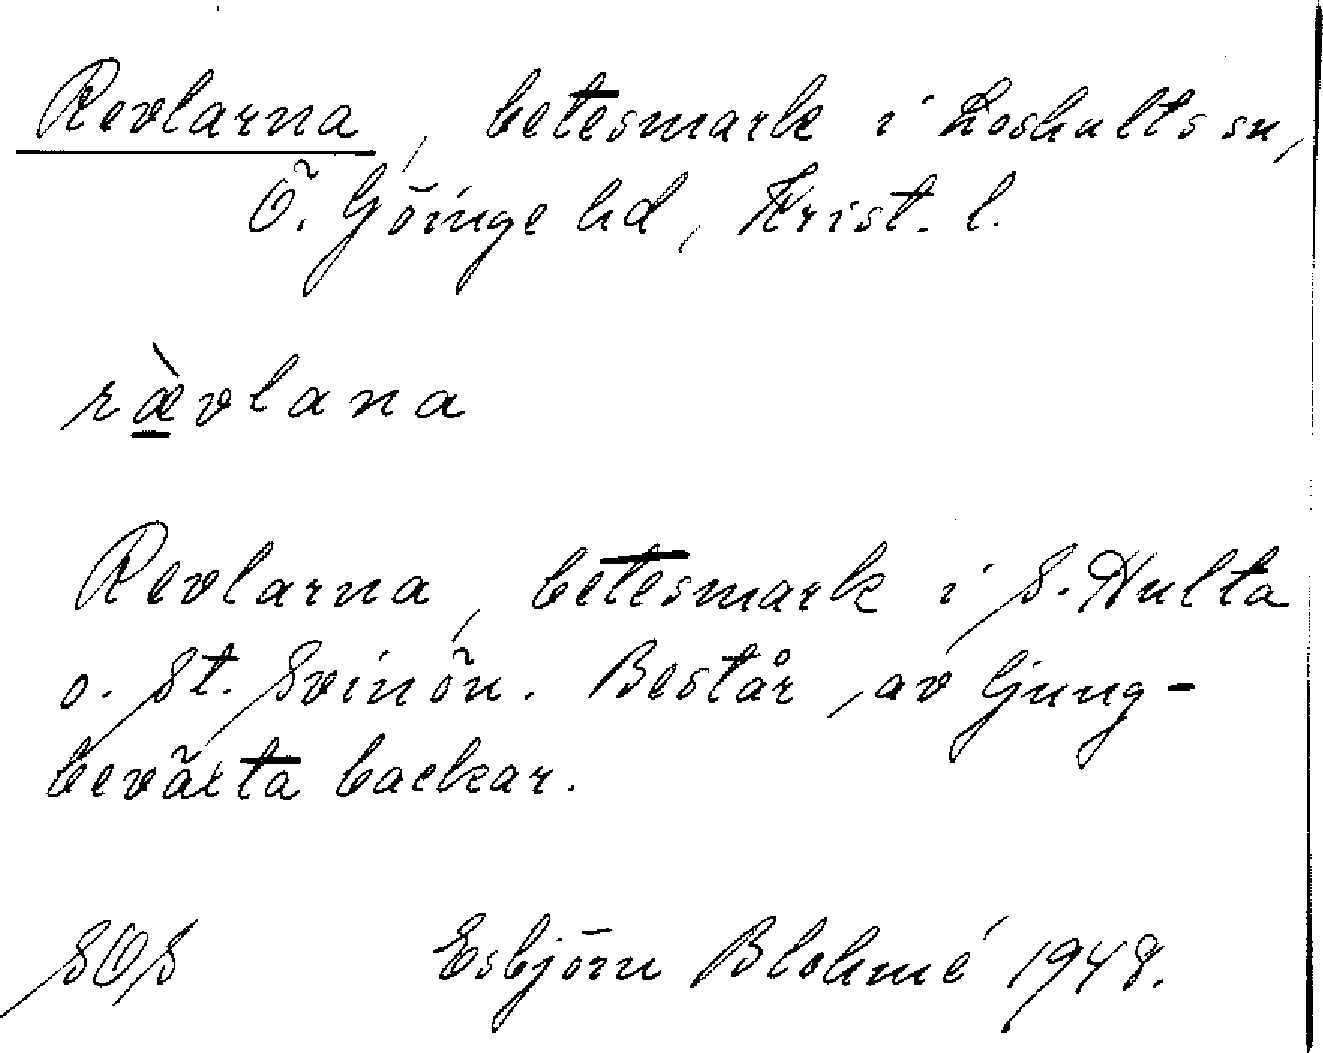 Revlarna, betesmark i Loshults sn,
Ö. Göinge hd, Krist. l.
rævlana
Revlarna, betesmark i S. Hulta
o. St. Svinön. Består av ljung-
beväxta backar.
SOS Esbjörn Blohmé 1948.